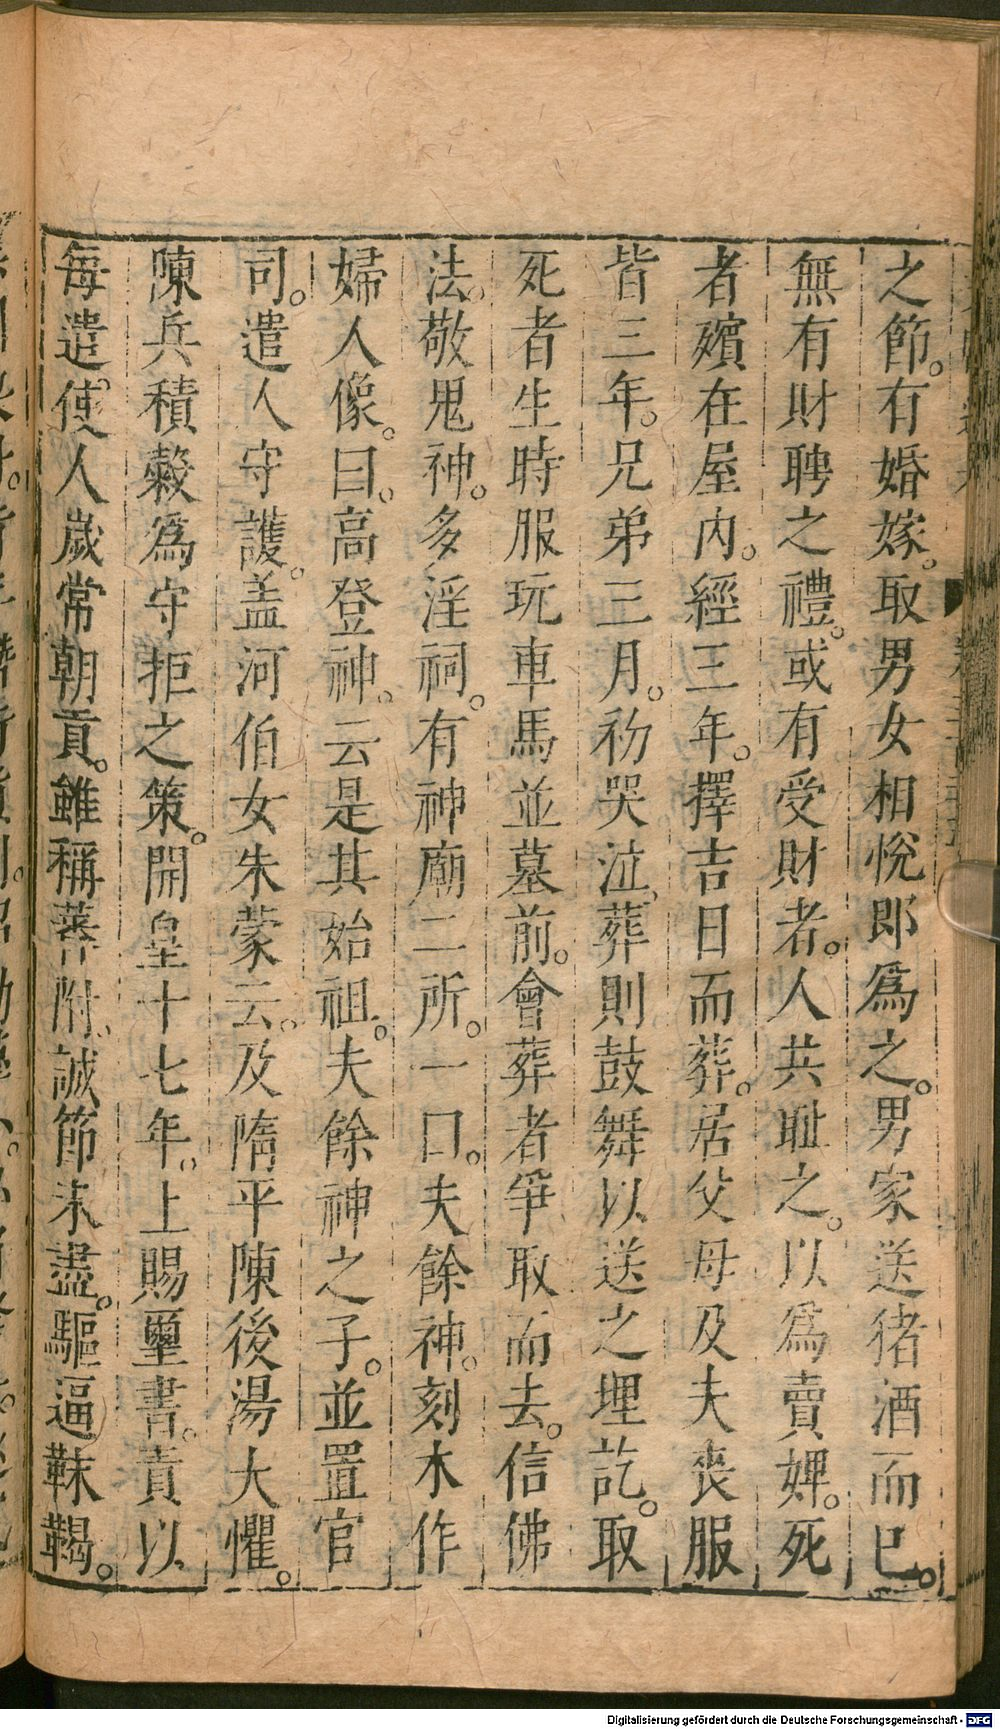 之節。有婚嫁。取男女相悅郎爲之。男家送猪酒而已。
無有財聘之禮。或有受財者。人共耻之。以爲賣婢。死
者殯在屋內。經三年。擇吉日而葬。居父母及夫喪服
皆三年。兄弟三月。初哭泣。葬則鼓舞以送之埋訖。取
死者生時服玩車馬並墓前。會葬者爭取而去。信佛
法。敬鬼神。多淫祠。有神廟二所。一曰。夫餘神。刻木作
婦人像。曰。高登神。云是其始祖。夫餘神之子。並置官
司。遣人守護。盖河伯女朱蒙云。及隋平陳後湯大懼。
陳兵積糓爲守拒之策。開皇十七年。上賜璽書。責以
每遣。使人歲常朝貢。雖稱蕃附。誠節未盡。驅逼靺鞨。
Digitalisierung gefördert durch die Deutsche Forschungsgemeinschaft - DFG